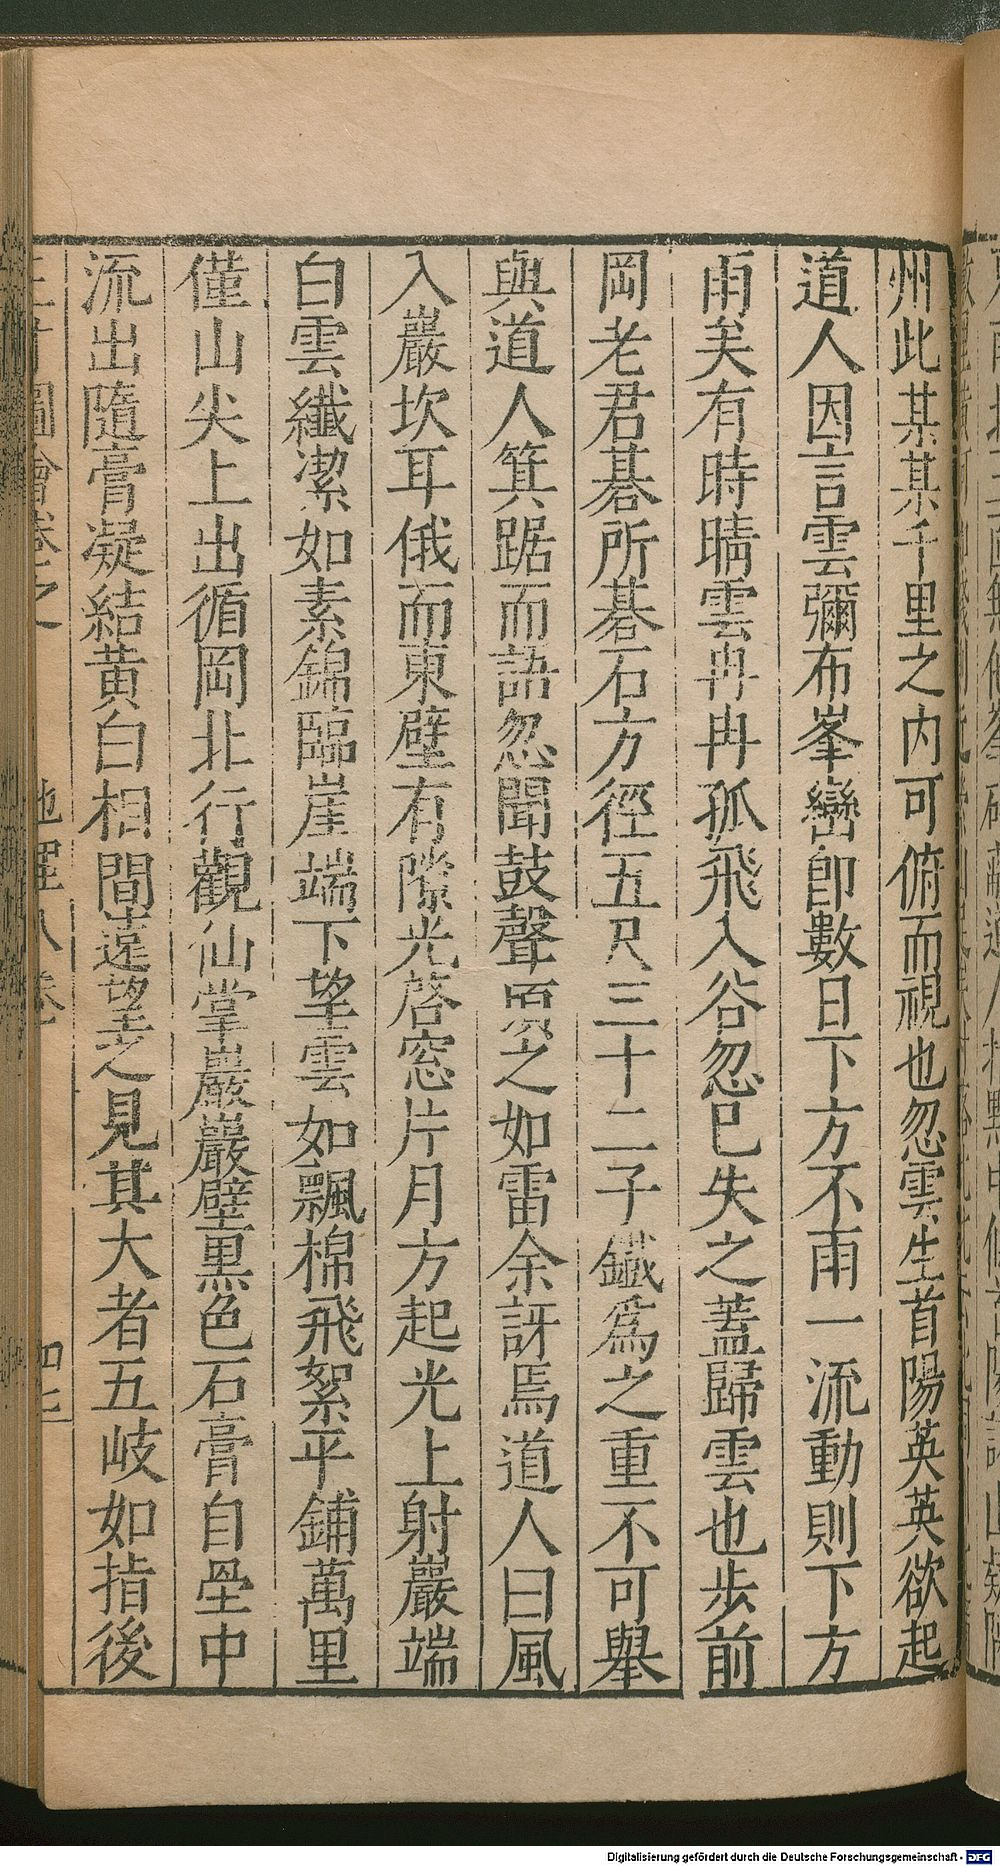 州此某某千里之内可俯而視也忽雲生首陽英英欲起
道人因言雲彌布峯巒卽數日下方不雨一流動則下方
雨矣有時晴雲冉冉孤飛入谷忽已失之蓋歸雲也步前
岡老君碁所碁石方徑五尺三十二子鐵爲之重不可舉
與道人箕踞而語忽聞鼓聲頃之如雷余訝焉道人曰風
入巖坎耳俄而東壁有隙光啓窓片月方起光上射巖端
白雲纖潔如素錦臨崖端下望雲如飄棉飛絮平鋪萬里
僅山尖上出循岡北行觀仙掌巖巖壁黒色石膏自壘中
流出隨膏凝結黄白相間遠望之見其大者五岐如指後
圖會卷之 地理八卷
Digitalisierung gefördert durch die Deutsche Forschungsgemeinschaft - DFG